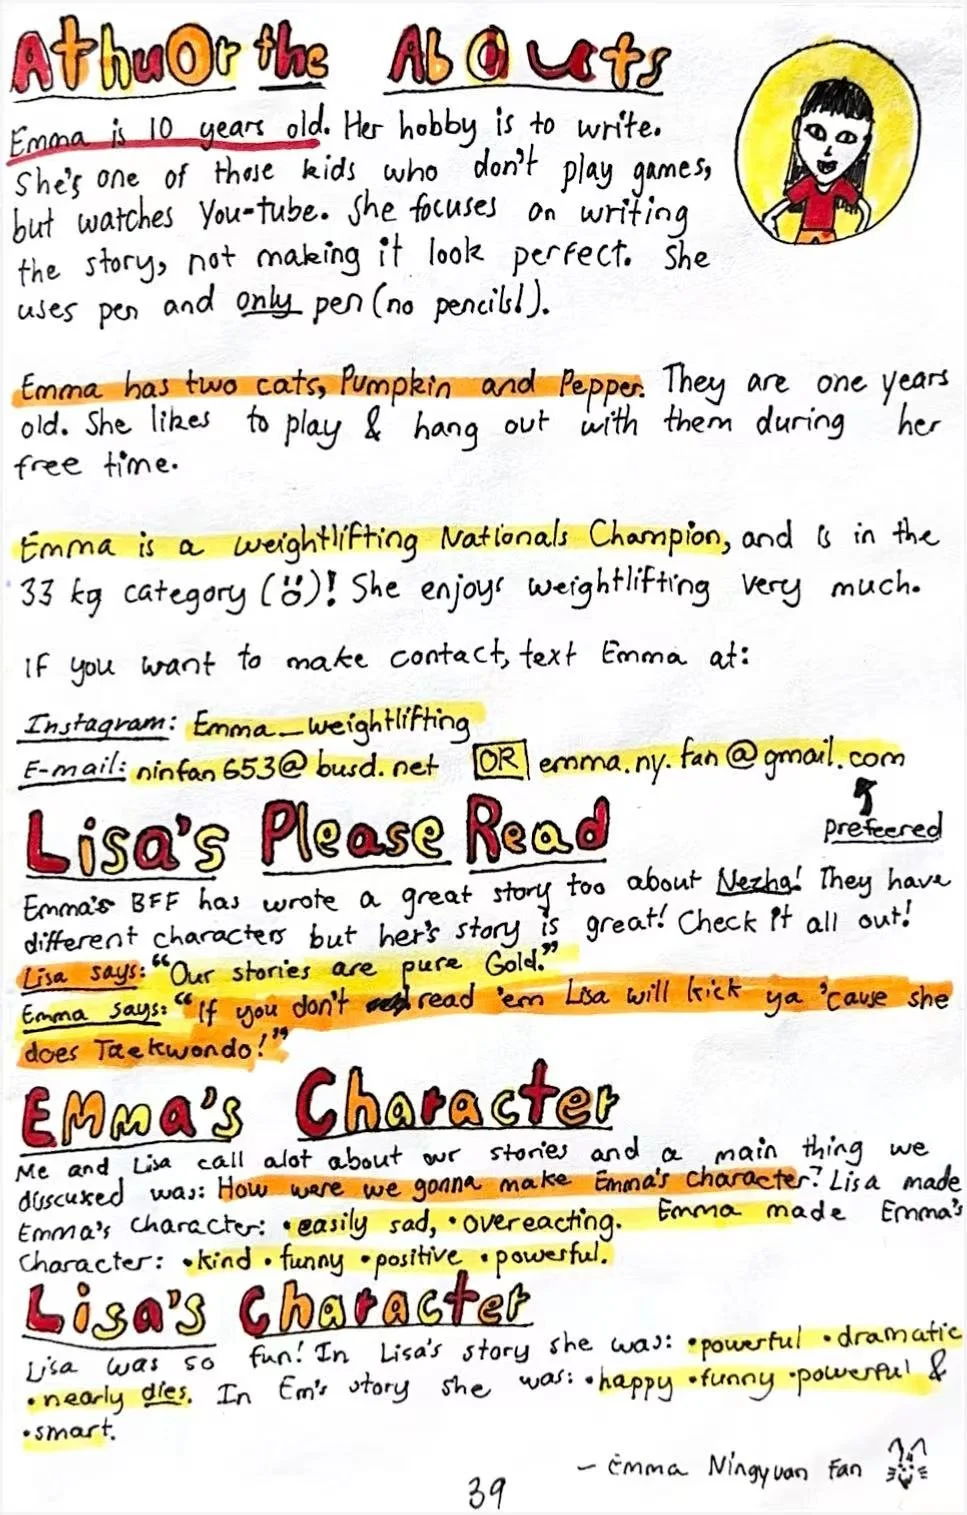 Athuor the Abouts
Emma is 10 years old. Her hobby is to write.
She's one of those kids who don't play games,
but watches You-tube. She focuses on writing
the story, not making it look perfect. She
uses pen and only pen (no pencils!).
Emma has two cats, Pumpkin and Pepper. They are one years
old. She likes to play & hang out with them during her
free time.
Emma is a weightlifting Nationals Champion, and is in the
33 kg category ( )! She enjoys weightlifting very much.
If you want to make contact, text Emma at:
Instagram: Emma_weightlifting
E-mail: ninfan653@busd.net OR emma.ny.fan@gmail.com
prefeered
Lisa's Please Read
Emma's BFF has wrote a great story too about Nezha! They have
different characters but her's story is great! Check it all out!
Lisa says: "Our stories are pure Gold."
Emma says: "If you don't read 'em Lisa will kick ya 'cause she
does Taekwondo!"
Emma's Character
Me and Lisa call alot about our stories and a main thing we
discuxed was: How were we gonna make Emma's character? Lisa made
Emma's character: •easily sad, •overeacting. Emma made Emma's
Character: •kind •funny •positive •powerful.
Lisa's Character
Lisa was so fun! In Lisa's story she was: •powerful •dramatic
•nearly dies. In Em's story she was: •happy •funny •powerful &
•smart.
– Emma Ningyuan Fan
39